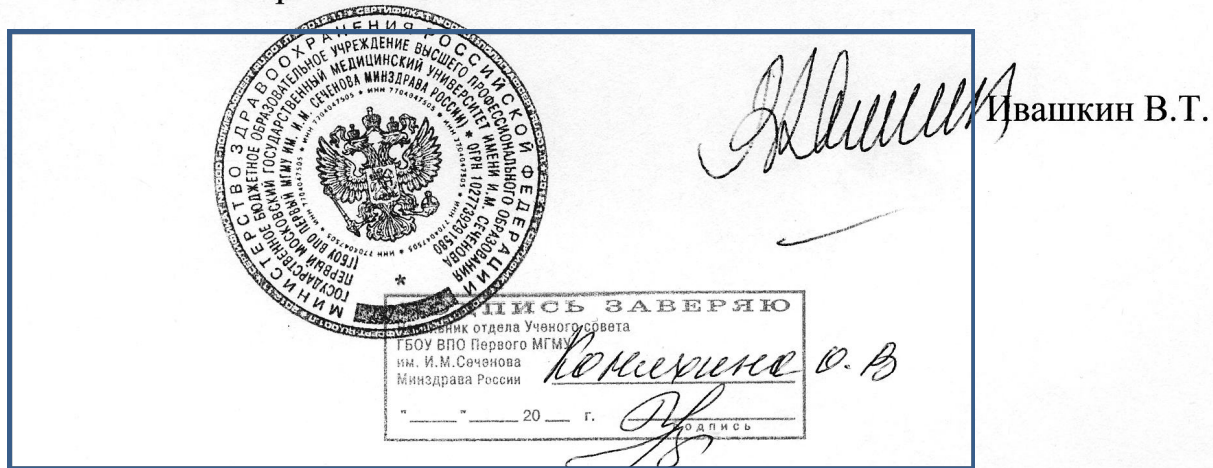 МИНИСТЕРСТВО ЗДРАВООХРАНЕНИЯ РОССИЙСКОЙ ФЕДЕРАЦИИ
ГОСУДАРСТВЕННОЕ БЮДЖЕТНОЕ ОБРАЗОВАТЕЛЬНОЕ УЧРЕЖДЕНИЕ ВЫСШЕГО ПРОФЕССИОНАЛЬНОГО ОБРАЗОВАНИЯ
ПЕРВЫЙ МОСКОВСКИЙ ГОСУДАРСТВЕННЫЙ МЕДИЦИНСКИЙ УНИВЕРСИТЕТ ИМЕНИ И.М. СЕЧЕНОВА
(ГБОУ ВПО ПЕРВЫЙ МГМУ ИМ. И.М. СЕЧЕНОВА МИНЗДРАВА РОССИИ) * ОГРН 1027739291580
* ИНН 7704047505 * ИНН 7704047505 * ИНН 7704047505
Ивашкин В.Т.
ПИСЬ ЗАВЕРЯЮ
отдела Ученого совета
ГБОУ ВПО Первого МГМУ
им. И.М.Сеченова
Минздрава России
О.В
" " 20 г.
подпись